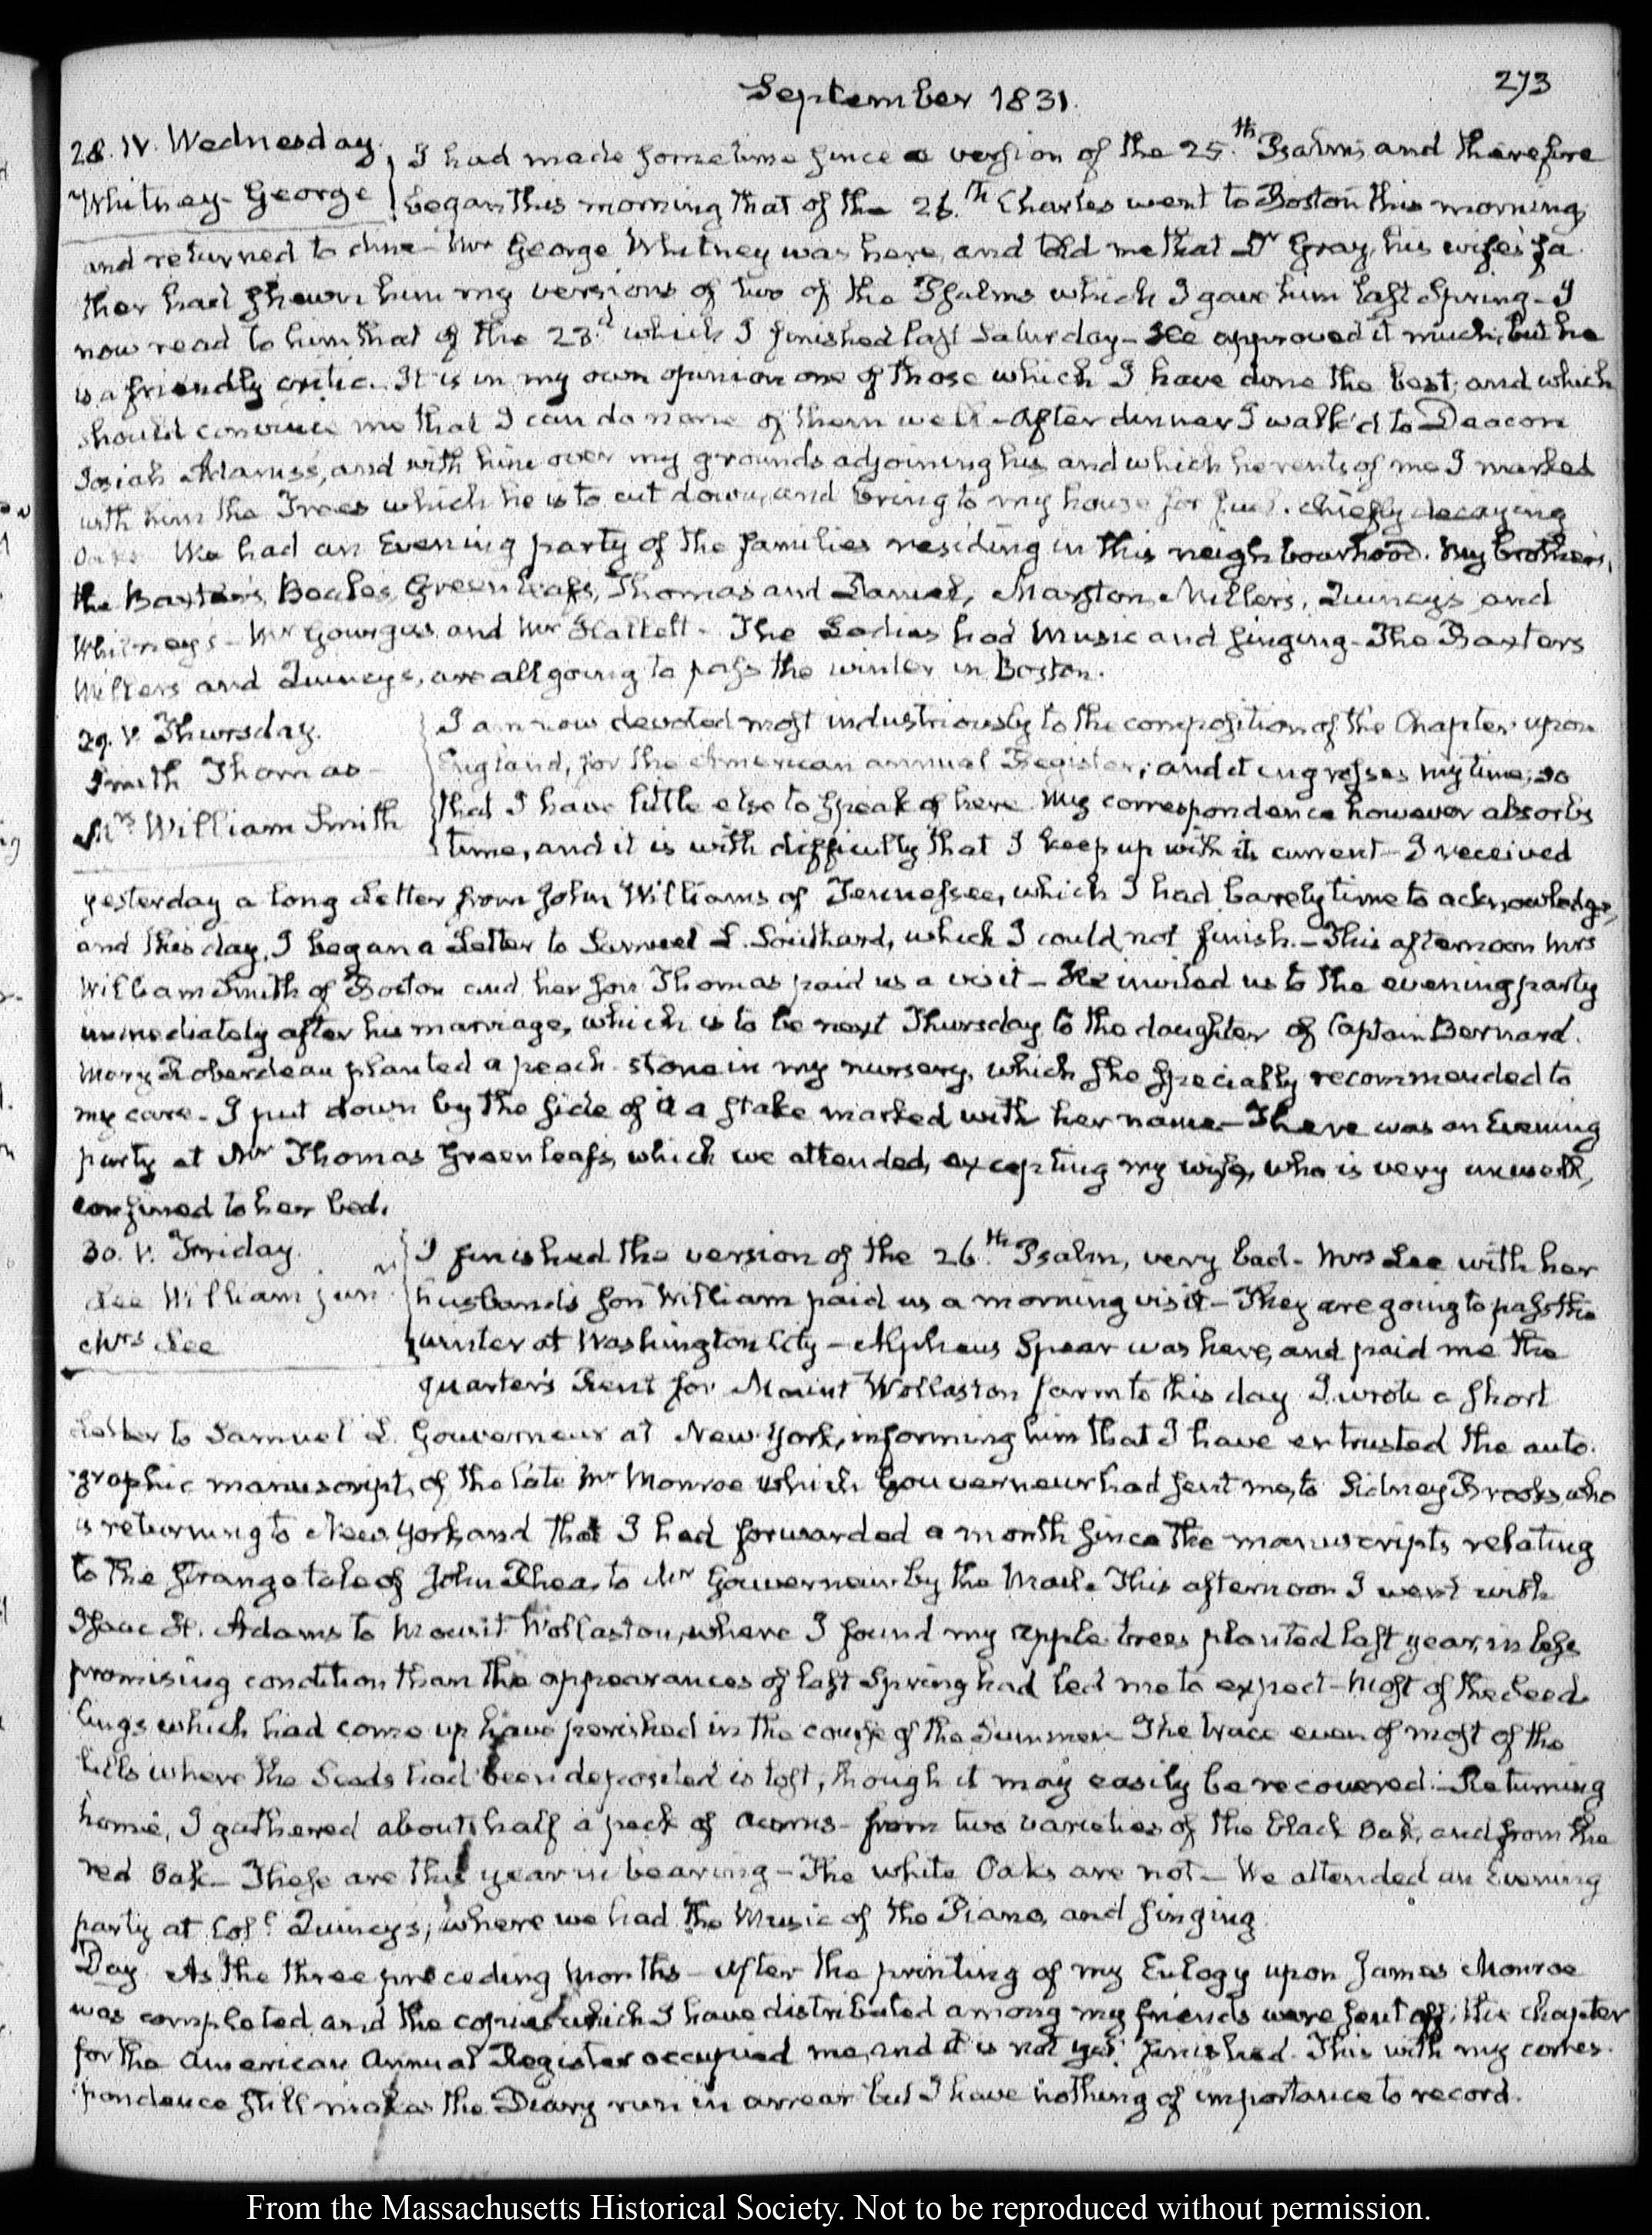 273
September 1831.
28. IV. Wednesday.
Whitney. George
I had made sometime since a version of the 25.th Psalm; and therefore
began this morning that of the 26.th Charles went to Boston this morning,
and returned to dine— Mr George Whitney was here, and told me that Dr Gray, his wife's fa
ther had shewn him my versions of two of the Psalms which I gave him last Spring— I
now read to him that of the 23.d which I finished last Saturday— He approved it much; but he
is a friendly critic. It is in my own opinion one of those which I have done the best; and which
should convince me that I can do none of them well— After dinner I walk'd to Deacon
Josiah Adams's, and with him over my grounds adjoining his and which he rents of me I marked
with him the Trees which he is to cut down, and bring to my house for fuel. chiefly decaying
Oaks We had an Evening party of the families residing in this neighbourhood. My brother's,
the Baxters, Beales, Greenleafs, Thomas and Daniel, Marston, Millers, Quincys and
Whitney's— Mr Gourgas and Mr Hallett— The Ladies had Music and singing— The Baxters
Millers and Quincys, are all going to pass the winter in Boston.
29. V. Thursday.
Smith Thomas—
Mrs William Smith
I am now devoted most industriously to the composition of the Chapter upon
England, for the American annual Register; and it engrosses my time; so
that I have little else to speak of here. My correspondence however absorbs
time, and it is with difficulty that I keep up with its current— I received
yesterday a long Letter from John Williams of Tennessee, which I had barely time to acknowledge,
and this day, I began a Letter to Samuel L. Southard, which I could not finish.— This afternoon Mrs
William Smith of Boston and her son Thomas paid us a visit— He invited us to the evening party
immediately after his marriage, which is to be next Thursday to the daughter of Captain Bernard.
Mary Roberdeau planted a peach-stone in my nursery, which she specially recommended to
my care— I put down by the side of it a stake marked with her name— There was an Evening
party at Mr Thomas Greenleaf's, which we attended, excepting my wife, who is very unwell,
confined to her bed.
30. V. Friday.
Lee William junr
Mrs Lee
I finished the version of the 26.th Psalm, very bad— Mrs Lee with her
husband's son William paid us a morning visit— They are going to pass the
winter at Washington City— Alpheus Spear was here, and paid me the
quarter's Rent for Mount Wollaston farm to this day I wrote a short
Letter to Samuel L. Gouverneur at New-York, informing him that I have entrusted the auto-
graphic manuscript, of the late Mr Monroe which Gouverneur had sent me, to Sidney Brooks, who
is returning to New York, and that I had forwarded a month since the manuscripts relating
to the strange tale of John Rhea, to Mr Gouverneur by the Mail. This afternoon I went with
Isaac H. Adams to Mount Wollaston, where I found my apple trees planted last year, in less
promising condition than the appearances of last Spring had led me to expect— Most of the Seed-
lings which had come up have perished in the course of the Summer. The trace even of most of the
hills where the Seeds had been deposited is lost, though it may easily be recovered.— Returning
home, I gathered about half a peck of acorns— from two varieties of the black Oak, and from the
red Oak— These are this year in bearing— The white Oaks are not— We attended an Evening
party at Col.l Quincy's; where we had the Music of the Piano, and singing.
Day. As the three preceding Months— After the printing of my Eulogy upon James Monroe
was completed and the copies which I have distributed among my friends were sent off; the chapter
for the American Annual Register occupied me, and it is not yet finished. This with my corres-
pondence still makes the Diary run in arrear but I have nothing of importance to record.
From the Massachusetts Historical Society. Not to be reproduced without permission.